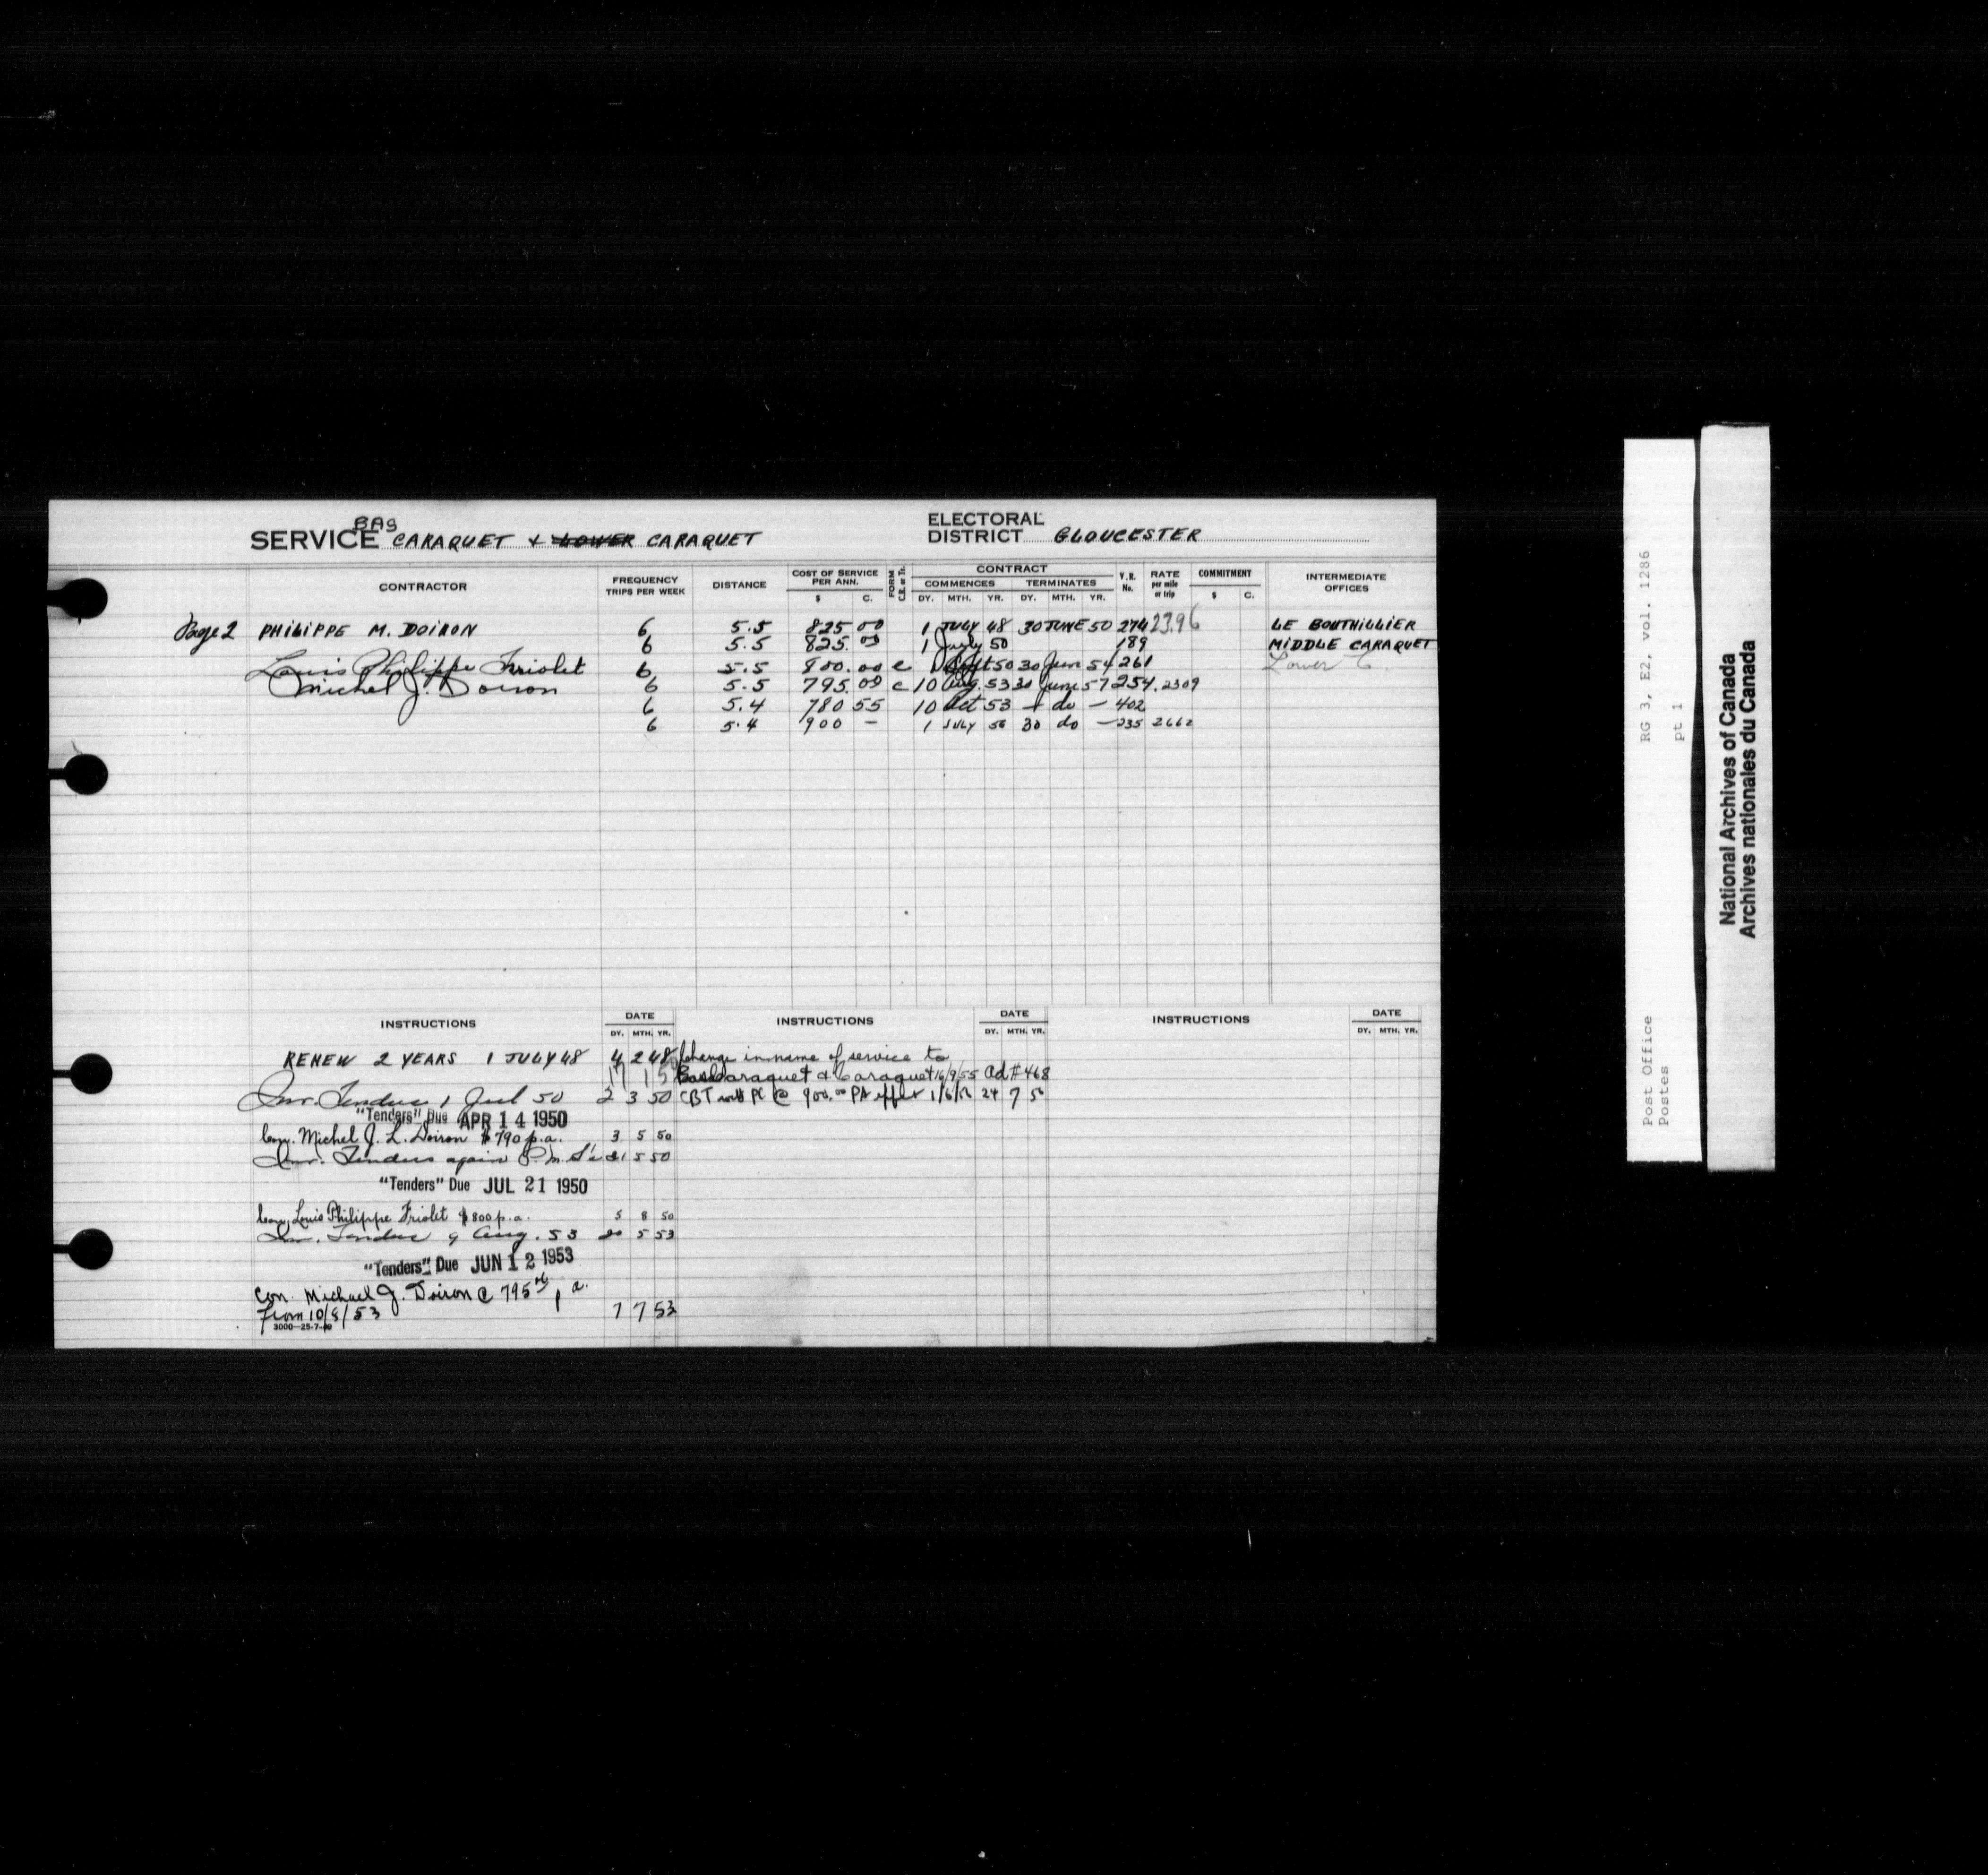 BAS
SERVICE CARAQUET & LOWER CARAQUET
ELECTORAL DISTRICT GLOUCESTER
CONTRACTOR FREQUENCY TRIPS PER WEEK DISTANCE COST OF SERVICE PER ANN. $ C. FORM C.R. or Tr. CONTRACT COMMENCES DY. MTH. YR. TERMINATES DY. MTH. YR. V.R. No. RATE per mile or trip COMMITMENT $ C. INTERMEDIATE OFFICES
Page 2 PHILIPPE M. DOIRON 6 5.5 825 00 1 JULY 48 30 JUNE 50 274 23.96 LE BOUTHILLIER
6 5.5 825.00 1 July 50 189 MIDDLE CARAQUET
Louis Philippe Friolet 6 5.5 800.00 c 1 Sept 50 30 June 54 261 Lower C.
Michel J. Doiron 6 5.5 795.00 c 10 Aug. 53 30 June 57 254 .2309
6 5.4 780 55 10 Oct 53 — do — 402
6 5.4 900 — 1 JULY 56 30 do — 235 2662
INSTRUCTIONS DATE DY. MTH. YR. INSTRUCTIONS DATE DY. MTH. YR. INSTRUCTIONS DATE DY. MTH. YR.
RENEW 2 YEARS 1 JULY 48 4 2 48
Inv. Tenders 1 Jul 50 2 3 50
"Tenders" Due APR 14 1950
Con. Michel J. L. Doiron $790 p.a. 3 5 50
Inv. Tenders again 31 5 50
"Tenders" Due JUL 21 1950
Con. Louis Philippe Friolet $800 p.a. 5 8 50
Inv. Tenders 9 Aug. 53 20 5 53
"Tenders" Due JUN 12 1953
Con. Michael J. Doiron @ 795 p a.
From 10/8/53 7 7 53
3000—25-7-
Change in name of service to
Bas Caraquet & Caraquet 16/9/55 Ad # 468
CBT @ 900.00 PA 24 7
RG 3, E2, vol. 1286
pt 1
Post Office
Postes
National Archives of Canada
Archives nationales du Canada